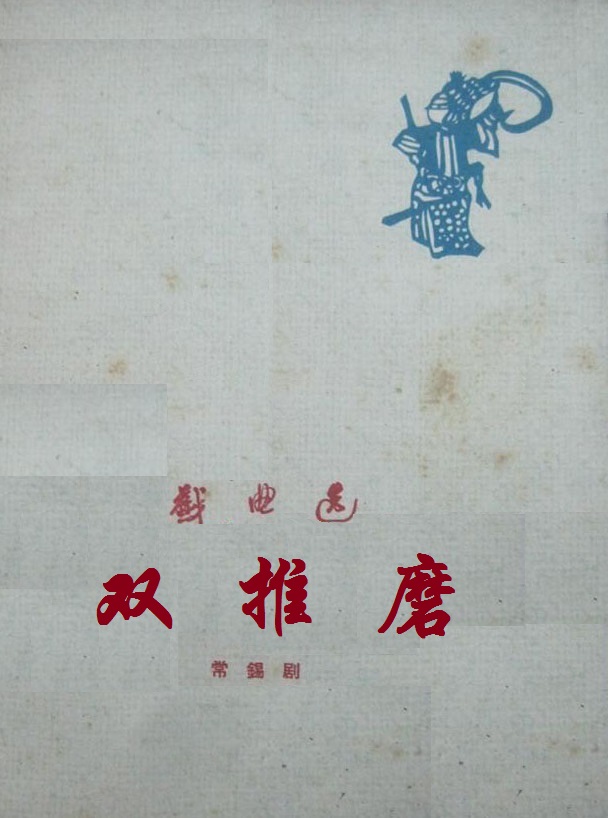 戲曲选
双推磨
常錫剧